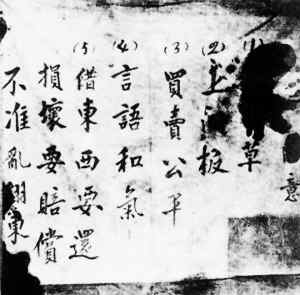 意
(1) 草
(2) 上板
(3) 買賣公平
(4) 言語和氣
(5) 借東西要還
損壞要賠償
不准亂翻東